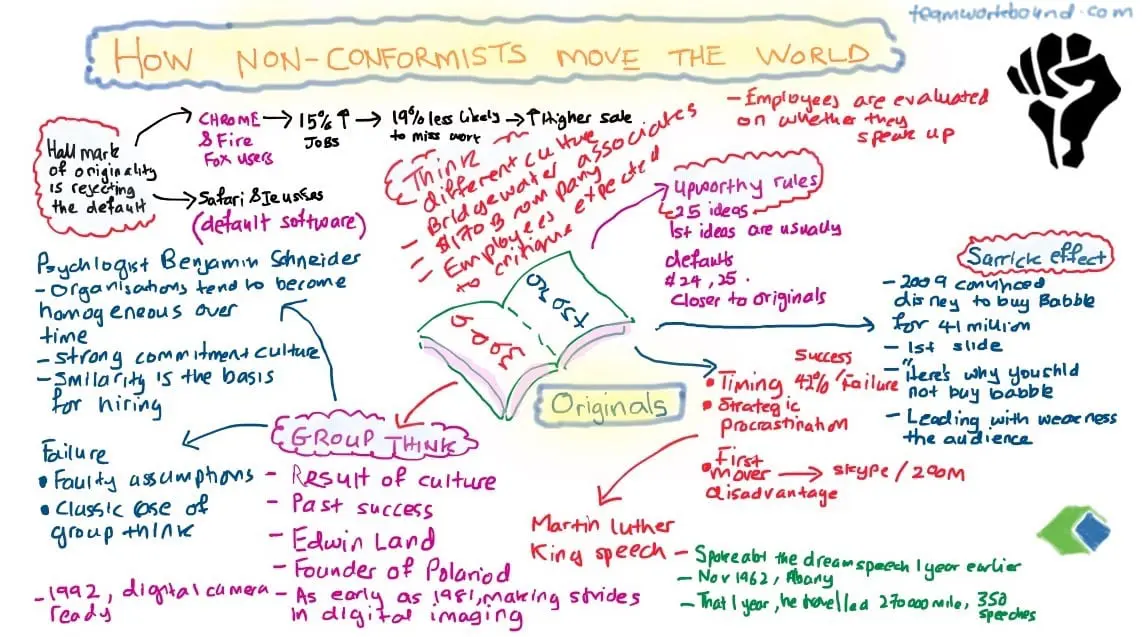 teamworkbound.com
HOW NON-CONFORMISTS MOVE THE WORLD
Hallmark
of originality
is rejecting
the default
CHROME
& Fire
Fox users
15% ↑
JOBS
19% less likely
to miss work
↑ Higher sale
Safari & Ie
(default software)
Think
different culture
- Bridgewater associates
- $170B company
- Employees expected
to critique
- Employees are evaluated
on whether they
speak up
Upworthy rules
25 ideas
1st ideas are usually
defaults
#24, 25.
Closer to originals
Psychlogist Benjamin Schneider
- Organisations tend to become
homogeneous over
time
- Strong commitment culture
- Smilarity is the basis
for hiring
Sarrick effect
- 2009 convinced
disney to buy Babble
for 41 million
- 1st slide
- "Here's why you shld
not buy babble
- Leading with weakness
the audience
Originals
Success
• Timing 42% / Failure
• Strategic
procrastination
• First
mover
disadvantage
skype / 200M
GROUP THINK
- Result of culture
- Past success
- Edwin Land
- Founder of Polariod
- As early as 1981, making strides
in digital imaging
Failure
• Faulty assumptions
• Classic case of
group think
- 1992, digital camera
ready
Martin luther
King speech
- Spoke abt the dream speech 1 year earlier
- Nov 1962, Abany
- That 1 year, he travelled 270000 mile, 350
speeches